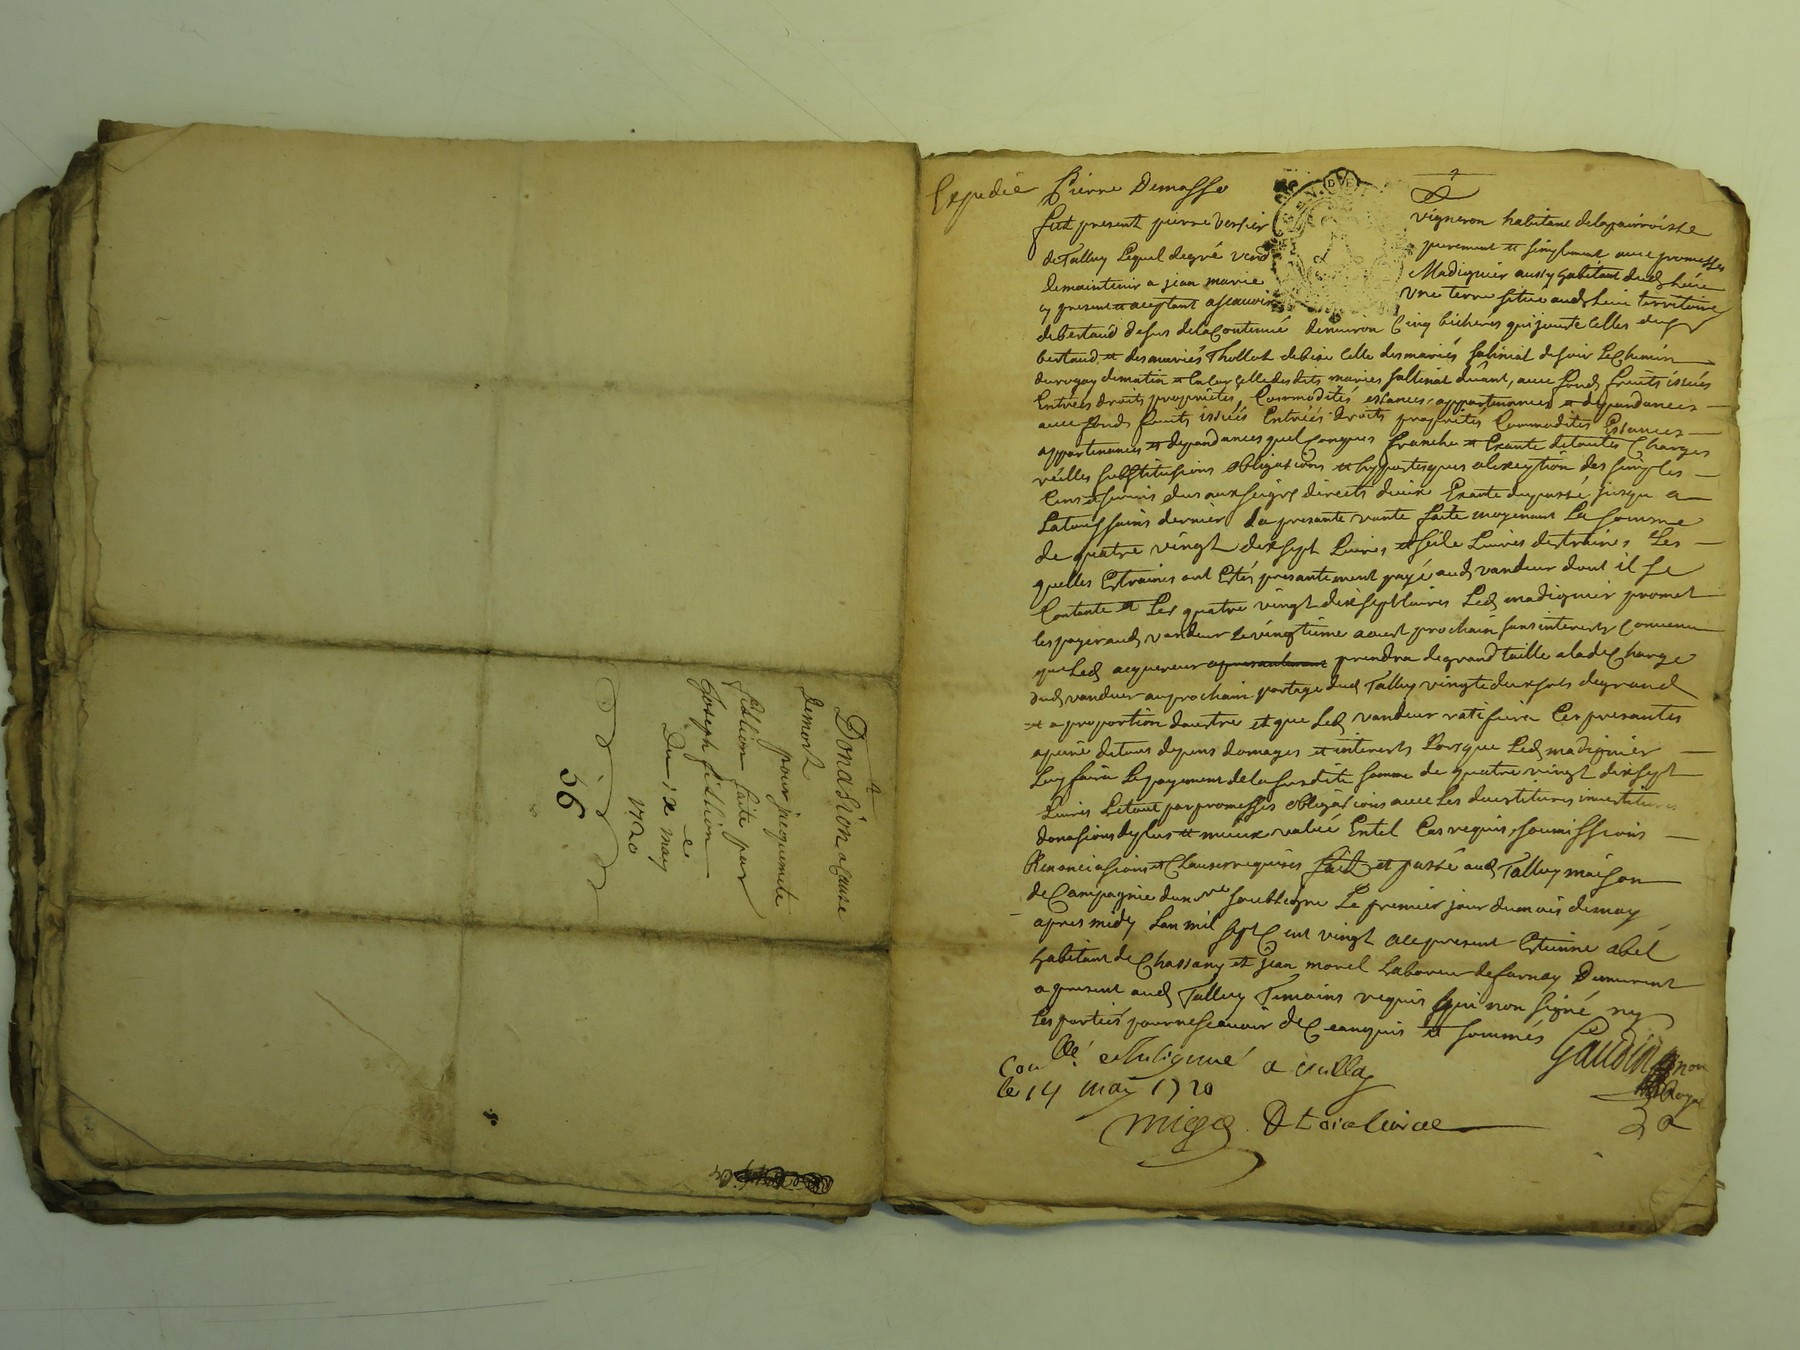 Donasion a cause
de mort
pour jacquemete
fislion faite par
Joseph fislion
Du ix e may
1720
56
Expedié
Pierre Demasso
fut present pierre Verpier vigneron habitant de la parroisse
de Talluy Lequel de gré vend purement et simplement avec promesses
de maintenir a jean marie Madignier aussy habitant dud lieu
cy present et aceptant ascavoir Une terre sitüe aud lieu territoire
de bertaud de la Contenüe denviron Cinq bicherés qui jouste celles du
bertaud et des mariés Thollot de bise celle des mariés de soir Le Chemin
de matin et celle desdits mariés avec fond fruits issües
Entrées droits proprietés Commodités aisances appartenances et dependances
avec fond fruits issües Entrées droits proprietés Commodités
appartenances et dependances quelconques franche et Exante de toutes Charges
substitusions obligasions et hypoteques a lexeption des simples
Cens et servis dus aux seigrs directs Exante du passé jusqu a
La toussains dernier La presante vante faite moyenant La somme
de quatre vingt dix sept Livres et seise Livres destraines Les
quelles Estraines ont Estés presantement payé aud vandeur dont il se
Contante et Les quatre vingt dix sept Livres Led madignier promet
les payer aud vandeur Le vingtieme aoust prochain sans interests convenu
que Led acquereur prendra de grand taille a la de Charge
dud vandeur au prochain partage dud Talluy vingt deux sols de grand
et a proportion dautre et que Led vandeur ratifiera Ces presantes
a peine de tous depens domages et interests Lors que Led madignier
Luy faira Le payement de la susdite somme de quatre vingt dix sept
Livres Le tout par promesses obligasions avec Les devestitures investitures
donasions de plus et mieux valüe Entel Cas requis, soumissions
Renonciasions et Clauses requises fait et passé aud Talluy maison
de Campagnie du nre soubsigne Le premier jour du mois de may
apres midy Lan mil sept Cent vingt ace present Estienne abél
habitant de Chassany et jean morel Laboreur de farnay Demurant
a present aud Talluy Temoins requis qui non signé ny
Les partiés pour ne scavoir de Ce enquis et sommés Gaudin
Royal
Conllé a
le 14 may 1720